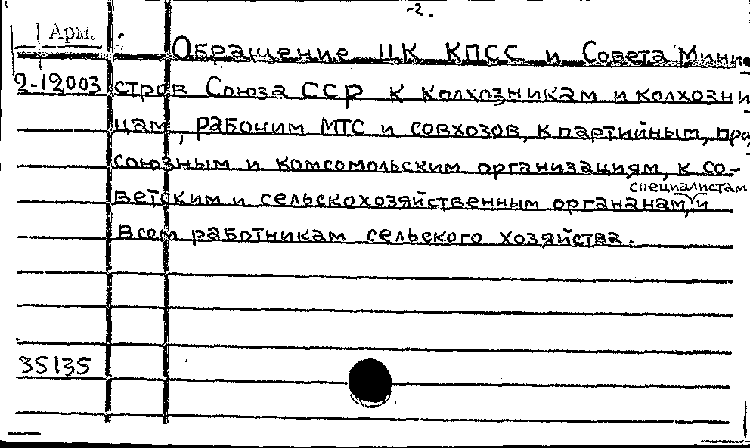 -2.
Арм.
Обращение ЦК КПСС и Совета Мини
2-12003 стров Союза ССР к колхозникам и колхозни
цам, рабочим МТС и совхозов, к партийным, про
союзным и комсомольским организациям, к со-
специалистам
ветским и сельскохозяйственным органанам, и
всем работникам сельского хозяйства.
35135